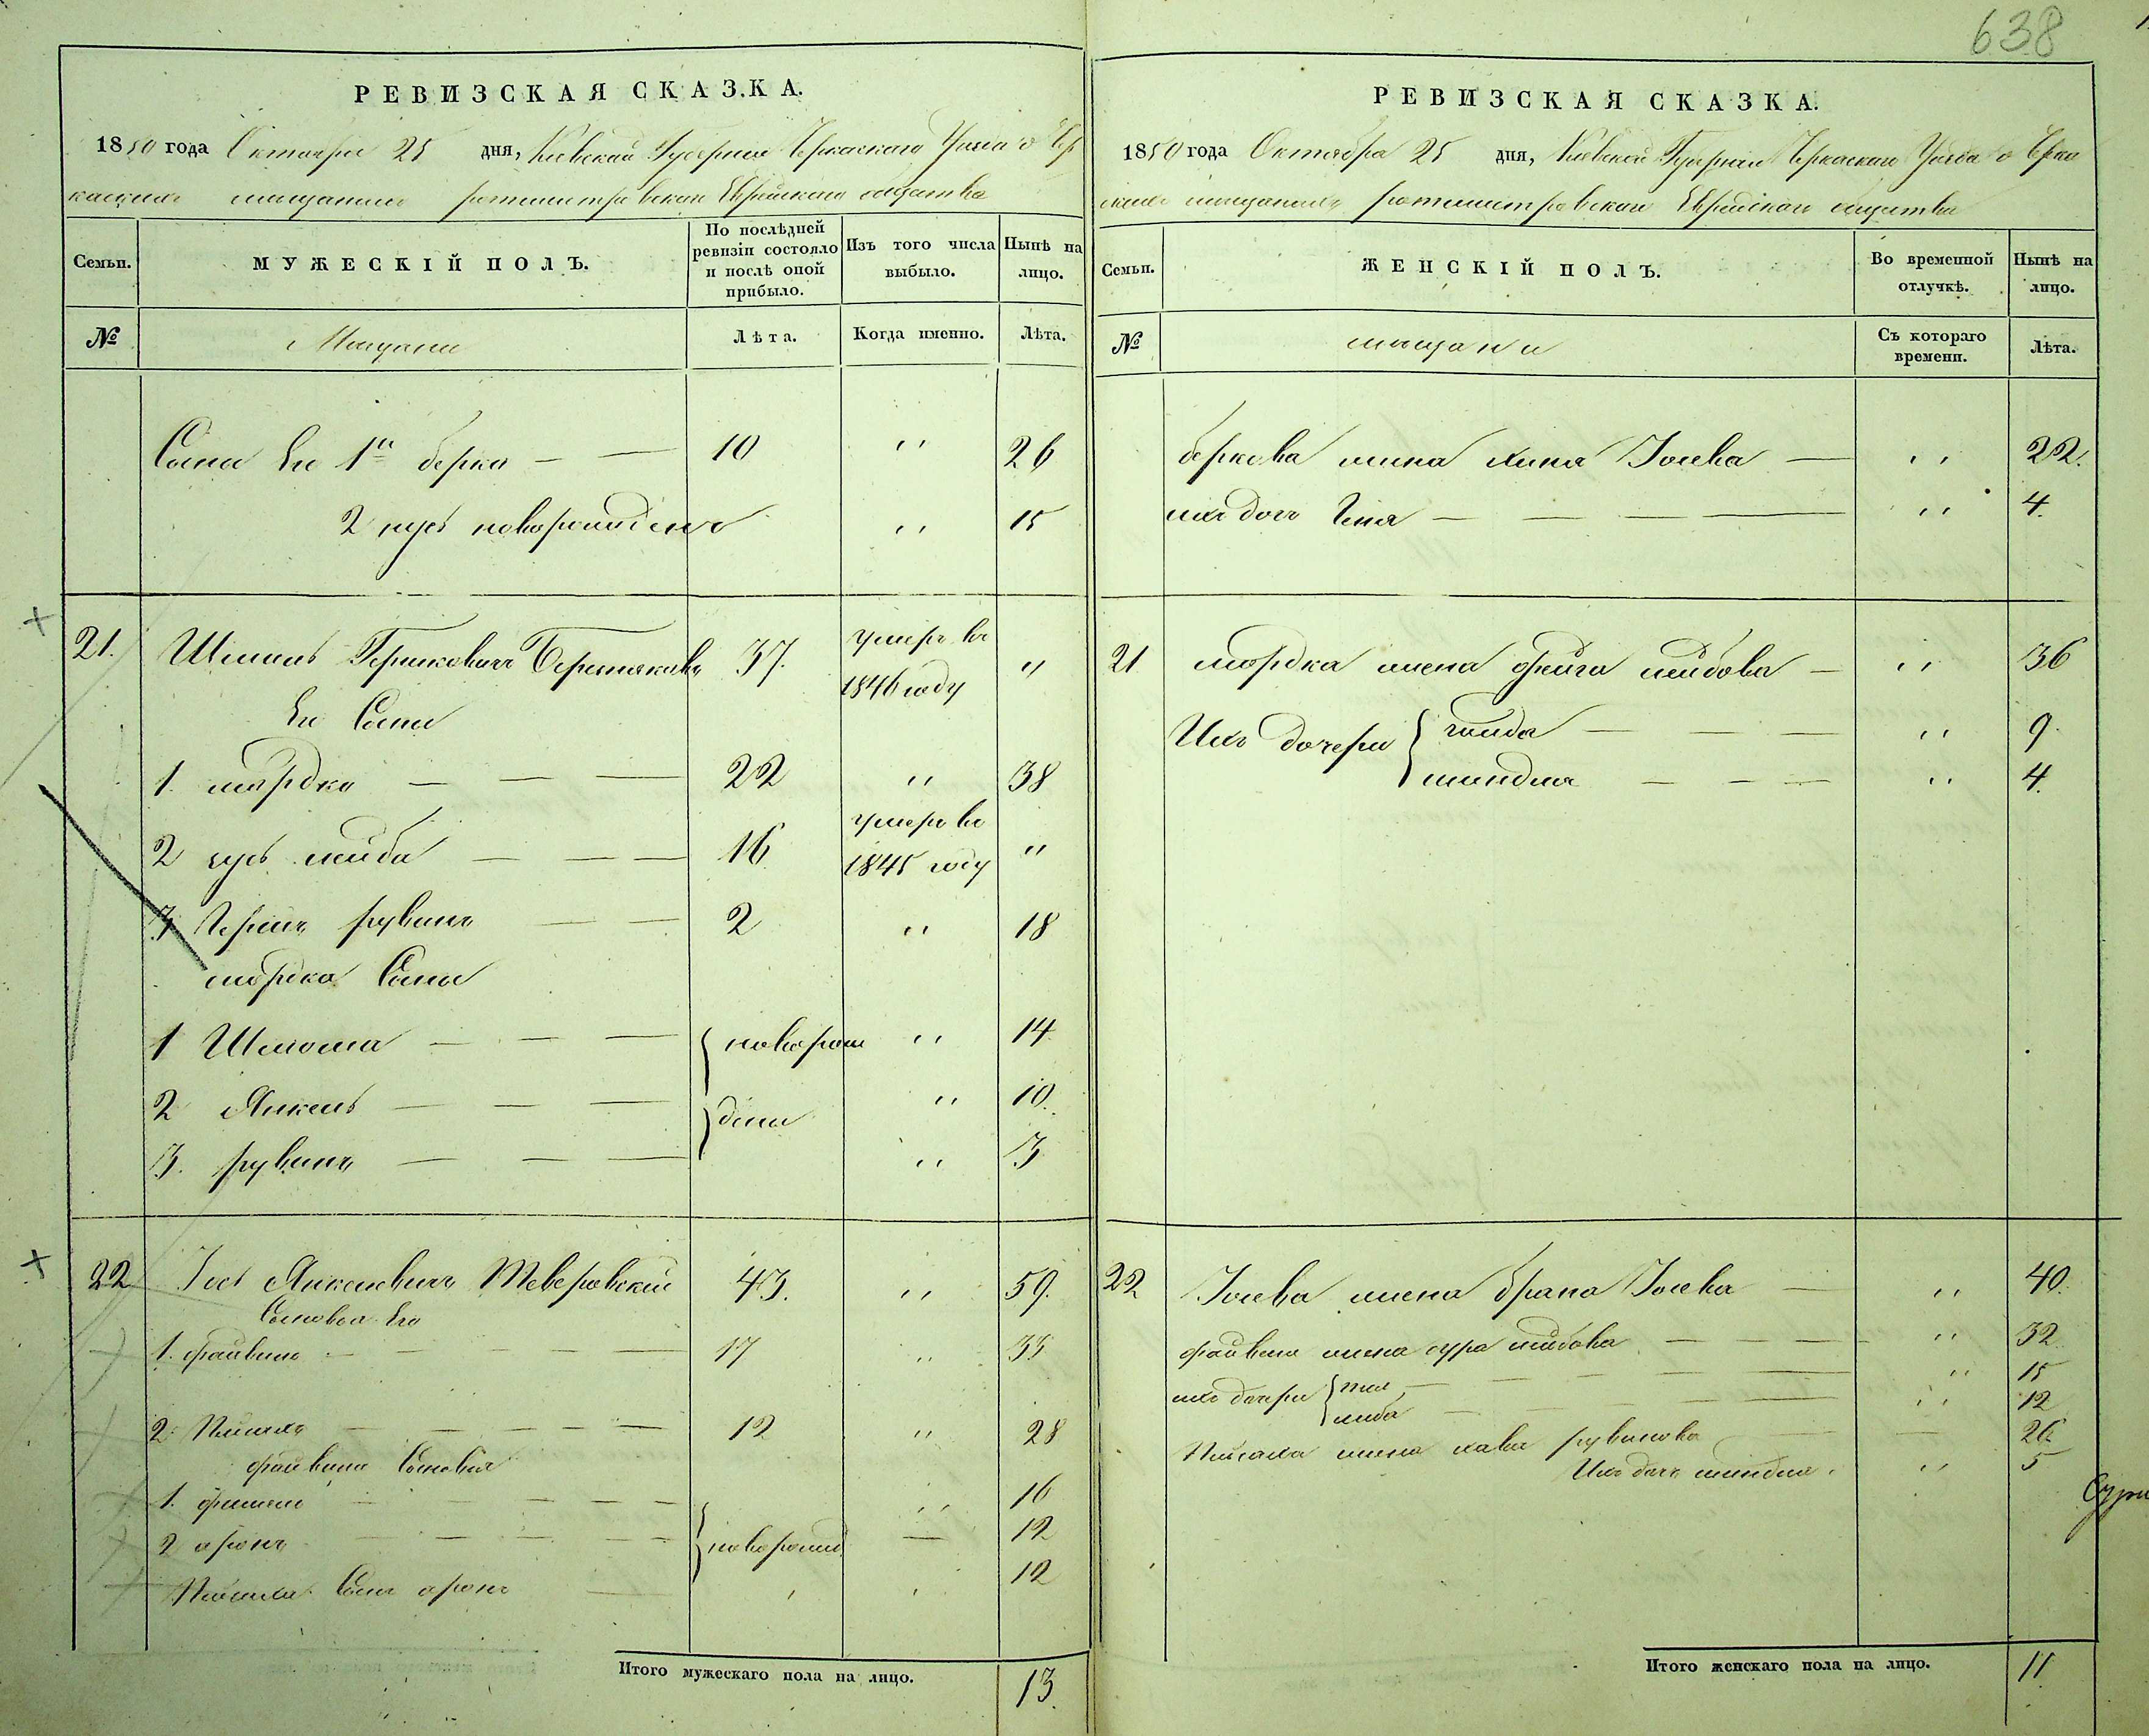 638
РЕВИЗСКАЯ СКАЗКА.
1850 года Октября 25 дня, Киевской Губернии Черкаскаго Уезда о Чер
каскихъ мещанахъ ротмистровскаго Еврейскаго общества
Семьи.
МУЖЕСКІЙ ПОЛЪ.
По послѣдней ревизіи состояло и послѣ оной прибыло.
Изъ того числа выбыло.
Нынѣ на лицо.
№
Мещани
Лѣта.
Когда именно.
Лѣта.
Сыни Его 1й берко 10 " 26
2 новорожденъ " 15
21. Шмиль Гершковичъ 37. умеръ въ 1846 году "
Его Сыни
1. мордко 22 " 38
2 лейба 16 умеръ въ 1845 году "
3 Гершъ рувинъ 2 " 18
мордка Сыни
1 Шлиома новорож " 14
2 Янкель дени " 10.
3. рувинъ " 3
22 Іось Янкелевичъ Теверовский 43. " 59.
Сыновья Его
1. файвишъ 17 " 33
2. Пейсахъ 12 " 28
файвиша Сыновья
1. фишель " 16
2 аронъ новорожд 12
Пейсаха Сынъ аронъ " 12
Итого мужескаго пола на лицо. 13.
РЕВИЗСКАЯ СКАЗКА.
1850 года Октября 25 дня, Киевской Губернии Черкаскаго Уезда о Черка
скихъ мещанахъ ротмистровскаго Еврейскаго общества
Семьи.
ЖЕНСКІЙ ПОЛЪ.
Во временной отлучкѣ.
Нынѣ на лицо.
№
мещани
Съ котораго времени.
Лѣта.
беркова жена хиня Іосева " 22.
ихъ дочь Геня " 4.
21 мордка жена фейга лейбова " 36
Ихъ дочери " 9.
шиндля " 4.
22 Іосева жена брана Іосева " 40.
файвиша жена сура лейбова " 32
ихъ дочери " 15
либа " 12
Пейсаха жена хава рувинова 26
Ихъ дочь шиндля " 5
Итого женскаго пола на лицо. 11